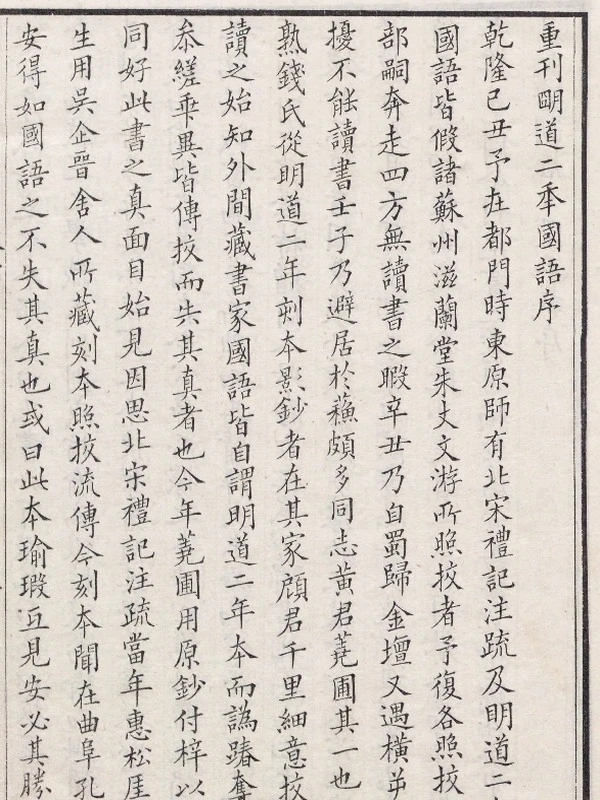 重刊明道二年國語序
乾隆己丑予在都門時東原師有北宋禮記注疏及明道二
國語皆假諸蘇州滋蘭堂朱丈文游所照挍者予復各照挍
部嗣奔走四方無讀書之暇辛丑乃自蜀歸金壇又遇橫逆
擾不能讀書壬子乃避居於蘓頗多同志黃君蕘圃其一也
熟錢氏從明道二年刻本影鈔者在其家顧君千里細意挍
讀之始知外間藏書家國語皆自謂明道二年本而譌踳奪
叅縒乖異皆傳挍而失其真者也今年蕘圃用原鈔付梓以
同好此書之真面目始見因思北宋禮記注疏當年惠松厓
生用吳企晉舍人所藏刻本照挍流傳今刻本聞在曲阜孔
安得如國語之不失其真也或曰此本瑜瑕互見安必其勝